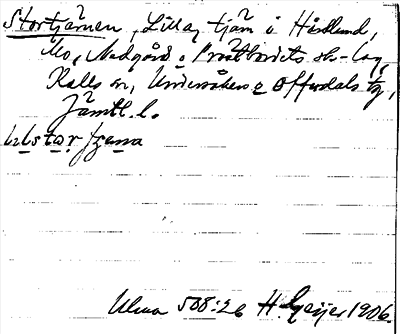 Stortjärnen, Lilla, tjärn i Hårdlund,
Mo, Nedgård o Prästbordets sk-lag,
Kalls sn, Undersåkers o Offerdals tg,
Jämtl. l.
Ulma 508:26 H. Geijer 1906.